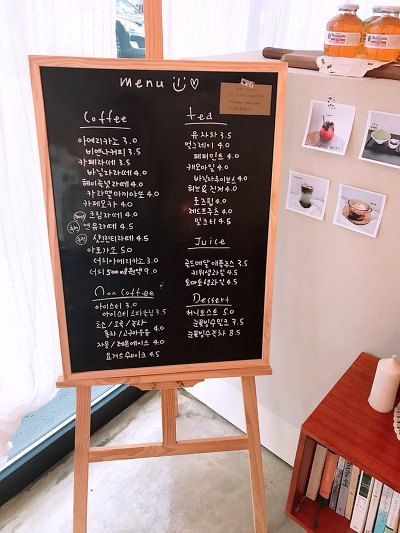 menu
Coffee
아메리카노 3.0
비엔나커피 3.5
카페라떼 3.5
바닐라라떼 4.0
헤이즐넛라떼 4.0
카라멜마끼아또 4.0
카페모카 4.0
크림라떼 4.0
연유라떼 4.5
샷그린티라떼 4.5
아포가토 5.0
더치아메리카노 3.5
더치500㎖원액 9.0
Non Coffee
아이스티 3.0
아이스티 샷추가 3.5
초코/오곡/녹차
홍차/고구마우유 4.0
자몽/레몬에이드 4.0
요거트쉐이크 4.5
tea
유자차 3.5
얼그레이 4.0
페퍼민트 4.0
캐모마일 4.0
바닐라루이보스 4.0
허브&진저 4.0
로즈힙 4.0
레드후르츠 4.0
밀크티 4.5
Juice
골드메달 애플쥬스 3.5
키위생과일 4.5
토마토생과일 4.5
Dessert
허니토스트 5.0
눈꽃빙수밀크 7.5
눈꽃빙수녹차 8.5